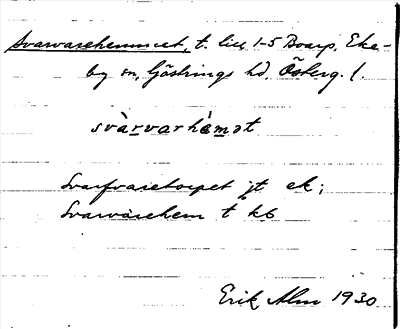 Svarvarehemmet, t. lill 1-5 Boarp, Eke-
by sn, Göstrings hd, Österg. l.
svàrvarhèmət
Svarfvaretorpet jt ek;
Svarvarehem t kb
Erik Alm 1930